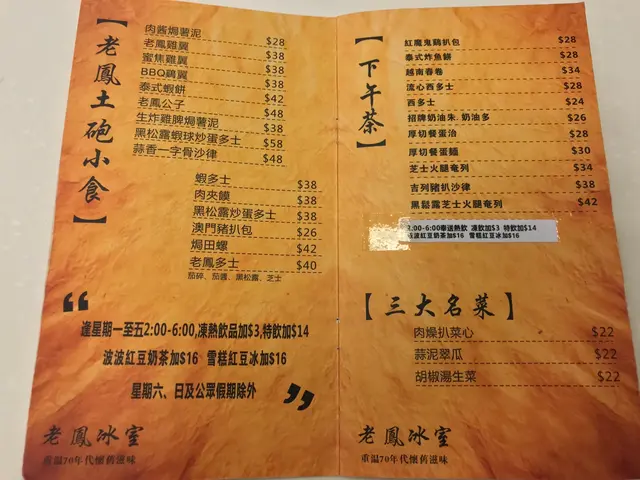 【老鳳土砲小食】
肉酱焗薯泥 $28
老鳳雞翼 $38
蜜焦雞翼 $38
BBQ鷄翼 $38
泰式蝦餅 $42
老鳳公子 $48
生炸雞脾焗薯泥 $38
黑松露蝦球炒蛋多士 $58
蒜香一字骨沙律 $48
蝦多士 $38
肉夾饃 $38
黑松露炒蛋多士 $38
澳門豬扒包 $26
焗田螺 $42
老鳳多士 $40
茄碎、茄醬、黑松露、芝士
“
逢星期一至五2:00-6:00,凍熱飲品加$3,特飲加$14
波波紅豆奶茶加$16 雪糕紅豆冰加$16
星期六、日及公眾假期除外
”
老鳳冰室
重溫70年代懷舊滋味
【下午茶】
紅魔鬼鷄扒包 $28
泰式炸魚餅 $28
越南春卷 $34
流心西多士 $28
西多士 $24
招牌奶油朱.奶油多 $26
厚切餐蛋治 $28
厚切餐蛋麵 $30
芝士火腿奄列 $34
吉列豬扒沙律 $38
黑鬆露芝士火腿奄列 $42
:00-6:00奉送熱飲 凍飲加$3 特飲加$14
波紅豆奶茶加$16 雪糕紅豆冰加$16
【三大名菜】
肉燥扒菜心 $22
蒜泥翠瓜 $22
胡椒湯生菜 $22
老鳳冰室
重溫70年代懷舊滋味